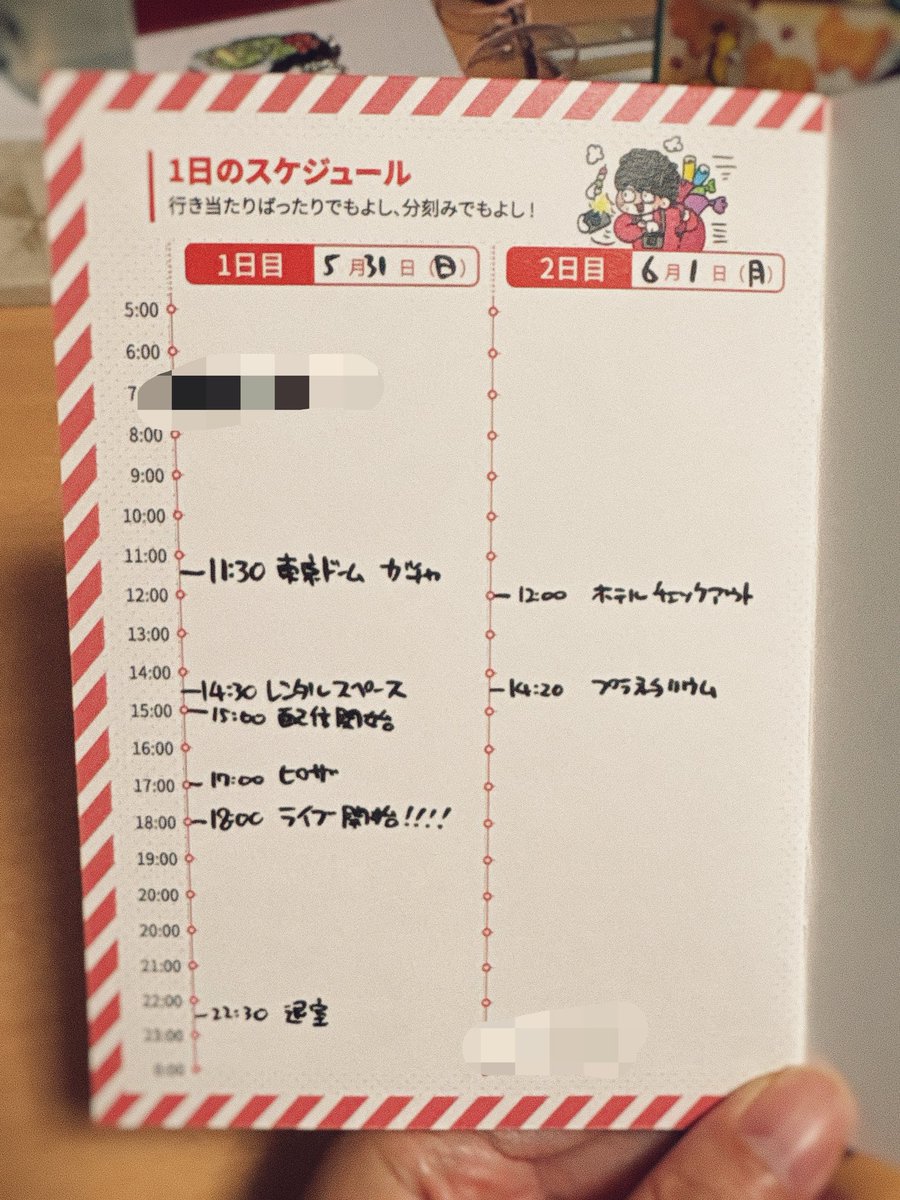 1日のスケジュール
行き当たりばったりでもよし、分刻みでもよし!
1日目 5月31日(日)
5:00
6:00
7
8:00
9:00
10:00
11:00
11:30 東京ドーム ガチャ
12:00
13:00
14:00
14:30 レンタルスペース
15:00
15:00 配信開始
16:00
17:00
17:00 ヒロザ
18:00
18:00 ライブ開始!!!!
19:00
20:00
20:00
21:00
22:00
22:30 退室
23:00
2日目 6月1日(月)
12:00 ホテルチェックアウト
14:20 プラネタリウム